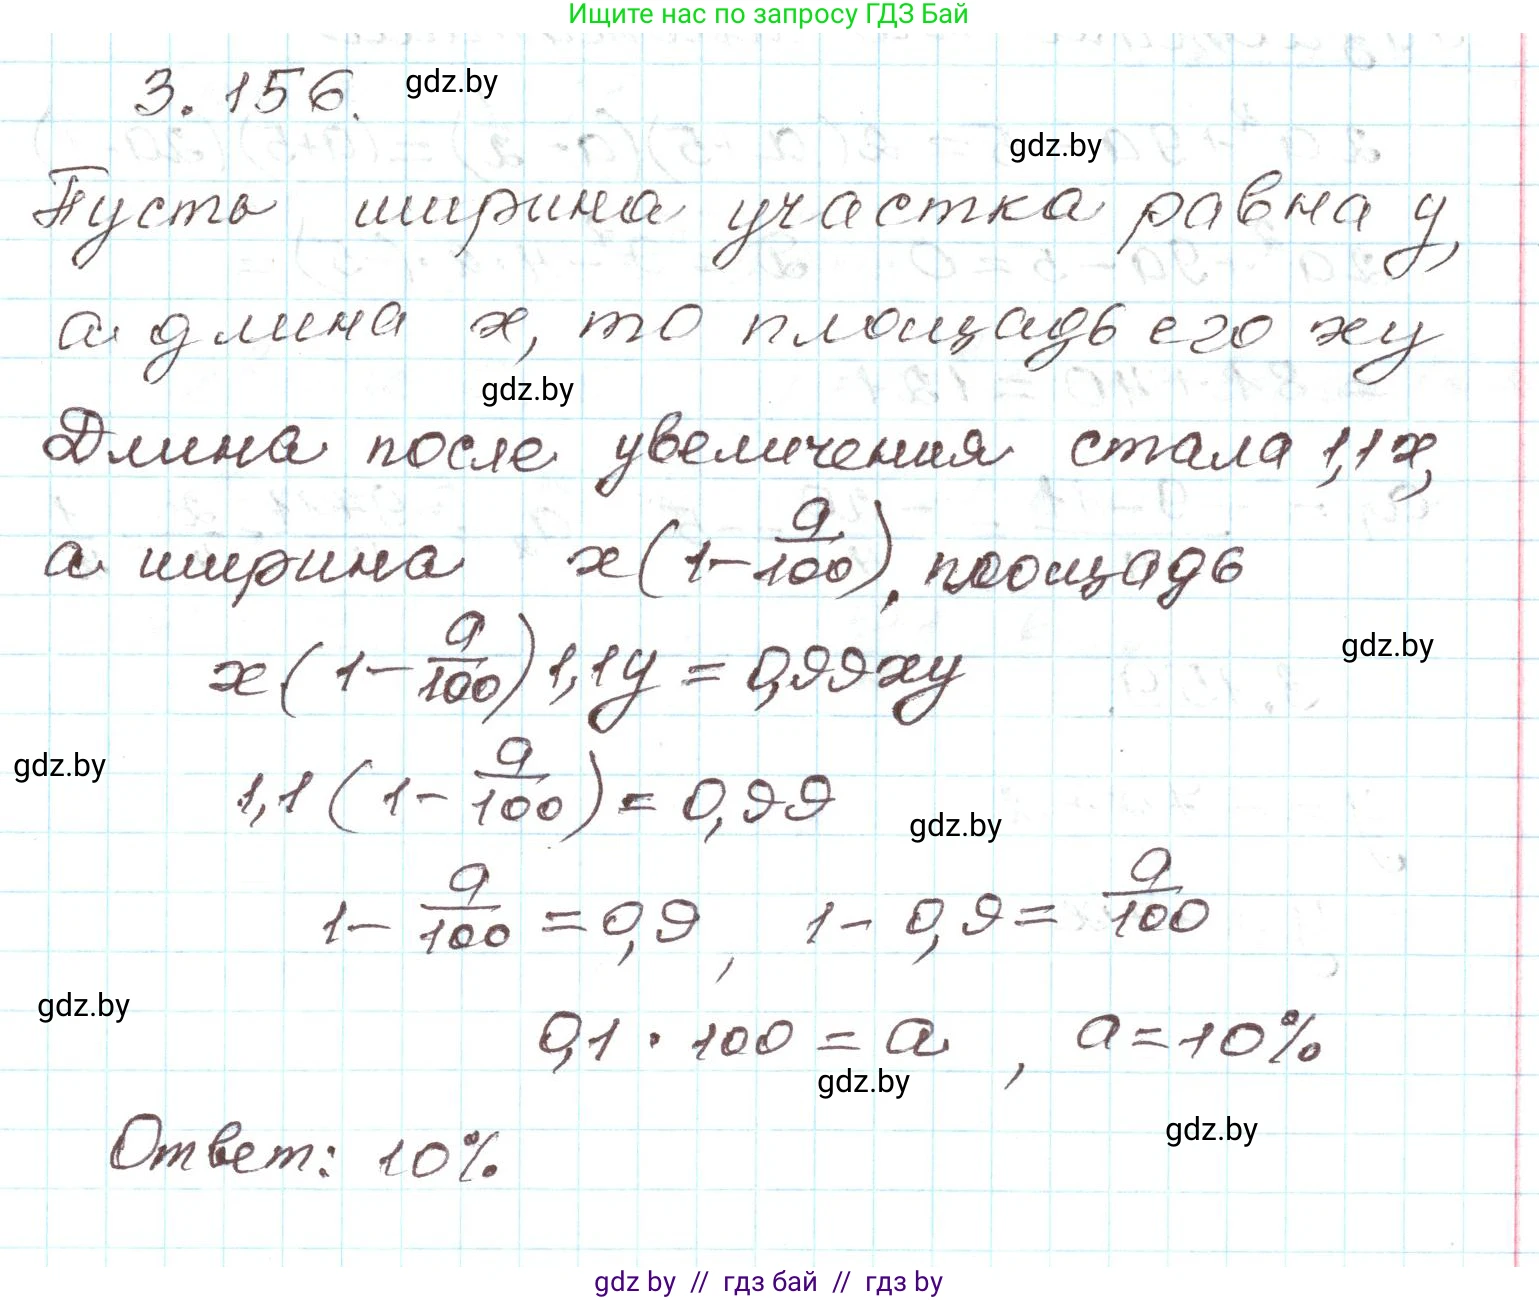 Ищите нас по запросу ГДЗ Бай
3.156. gdz.by
gdz.by
Пусть ширина участка равна y,
а длина x, то площадь его xy
gdz.by
Длина после увеличения стала 1,1x,
а ширина x(1-a/100), площадь
x(1-a/100)1,1y = 0,99xy
gdz.by
gdz.by
1,1(1-a/100) = 0,99
gdz.by
1-a/100 = 0,9, 1-0,9 = a/100
gdz.by
0,1 · 100 = a, a = 10%
gdz.by
gdz.by
Ответ: 10%
gdz by // гдз бай // гдз by